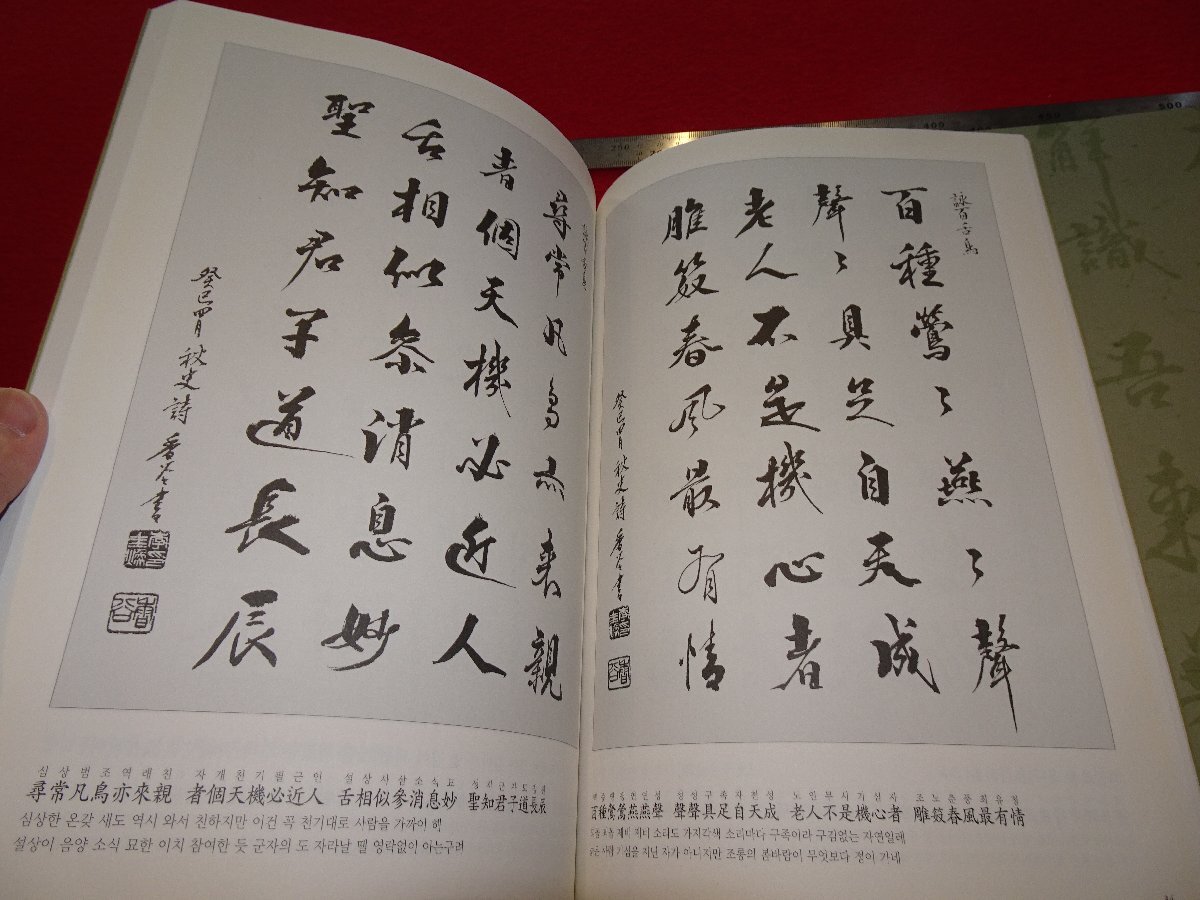 尋常凡鳥亦來親
者個天機必近人
舌相似參消息妙
聖知君子道長辰
癸巳四月 秋史詩 香谷書
심상범조역래친 자개천기필근인 설상사삼소식묘
尋常凡鳥亦來親 者個天機必近人 舌相似參消息妙 聖知君子道長辰
심상한 온갖 새도 역시 와서 친하지만 이건 꼭 천기대로 사람을 가까이 해
설상이 음양 소식 묘한 이치 참여한 듯 군자의 도 자라날 땔 영락없이 아는구려
詠百舌鳥
百種鶯〻燕〻聲
聲〻具足自天成
老人不是機心者
雕𥬇春風最有情
癸巳四月 秋史詩 香谷書
百種鶯鶯燕燕聲 聲聲具足自天成 老人不是機心者 雕𥬇春風最有情
제비 소리도 가지각색 소리마다 구족이라 구김없는 자연일레
기심을 지닌 자가 아니지만 조롱의 봄바람이 무엇보다 정이 가네
250
400
450
500
解
識
吾